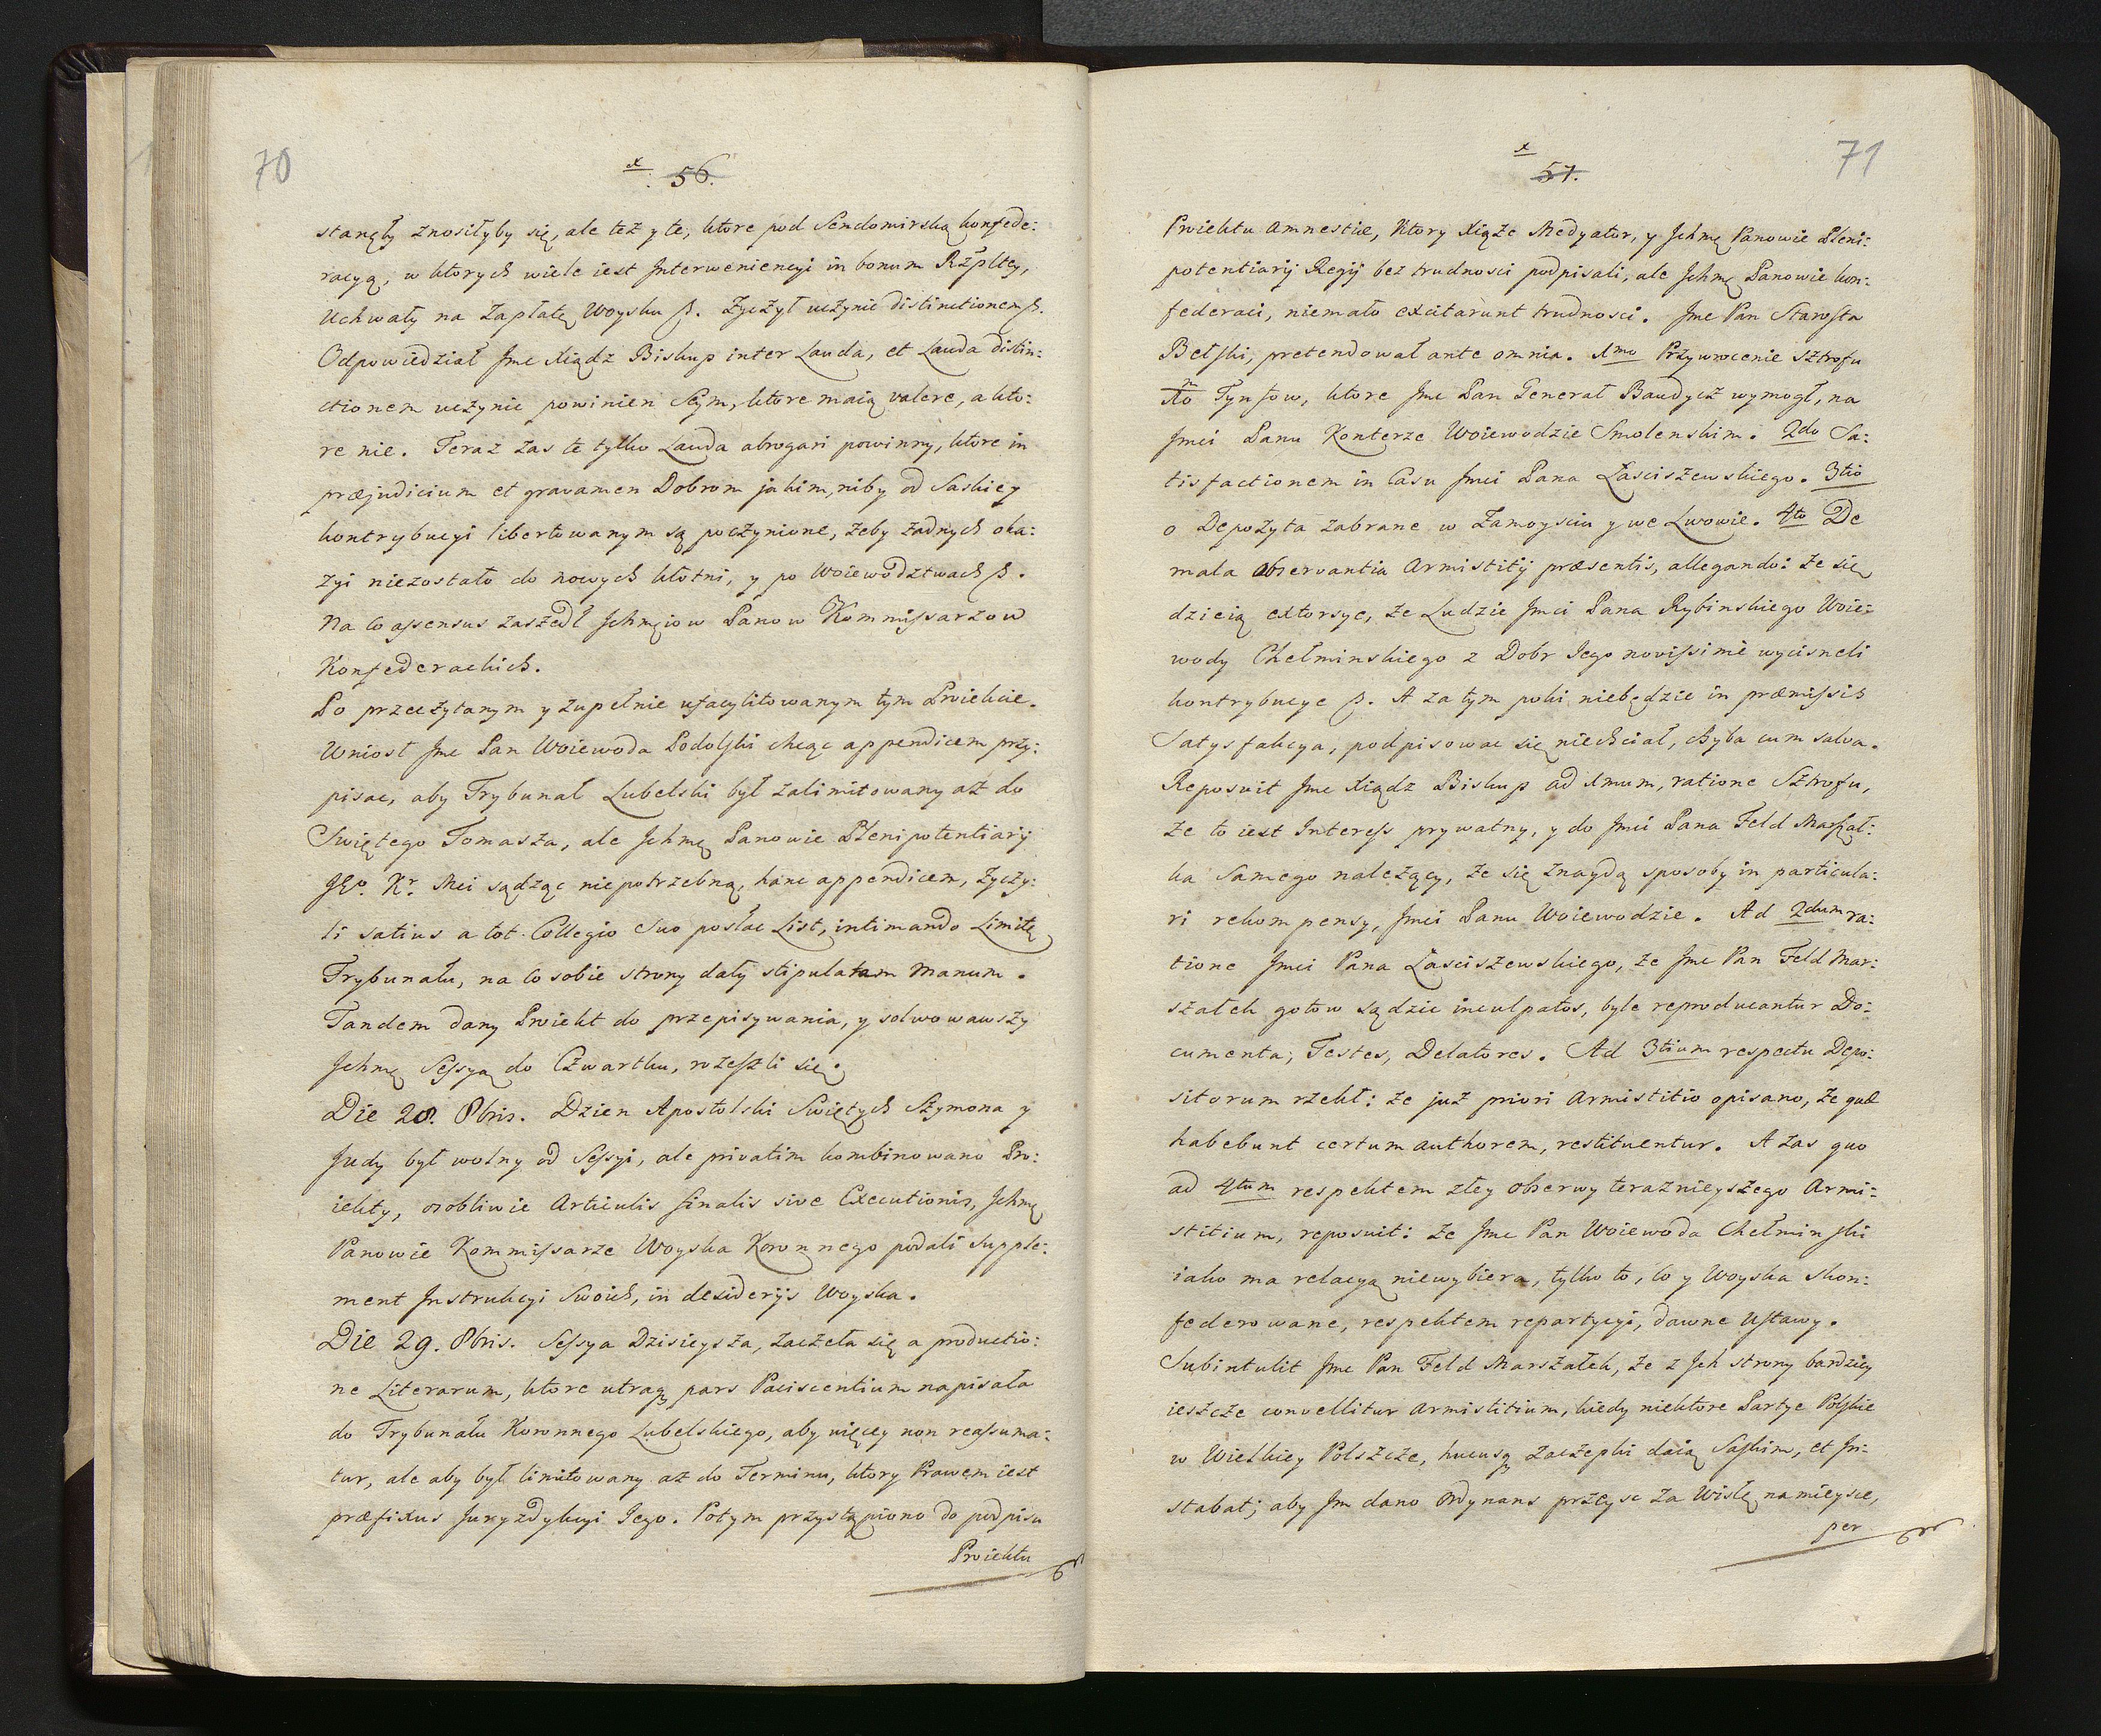 70
x
56.
stanęły znosiłyby się, ale też y te, ktore pod Sendomirską konfede:
racyą, w ktorych wiele iest Interweniencyi in bonum Rzpltey,
Uchwały na Zapłatę Woysku p. Zyczył uczynic distinctionem p.
Odpowiedział Jmc Xiądz Biskup inter Lauda, et Lauda distin:
ctionem uczynic powinien Seym, ktore maią valere, a kto:
re nie. Teraz zas te tylko Lauda abrogari powinny, ktore in
præjudicium et gravamen Dobrom jakim, niby od Saskiey
kontrybucyi libertowanym są poczynione, żeby żadnych oka:
zyi niezostało do nowych kłotni, y po Woiewodztwach p.
Na co assensus zaszedł Ichmciow Panow Kommissarzow
Konfederackich.
Po przeczytanym y zupełnie ufacylitowanym tym Proiekcie.
Wniosł Jmc Pan Woiewoda Podolski chcąc appendicem przy:
pisac, aby Trybunał Lubelski był zalimitowany aż do
Swiętego Tomasza, ale Ichmę Panowie Plenipotentiarij
JKo. Kr. Mci sądząc niepotrzebną, hanc appendicem, życzy:
li satius a tot Collegio Suo posłac List, intimando Limitę
Trybunału, na co sobie strony dały stipulatam manum.
Tandem dany Proiekt do przepisywania, y solwowawszy
Ichmę Sessyą do Czwartku, rozeszli się.
Die 28. 8bris. Dzien Apostolski Swiętych Szymona y
Judy był wolny od Sessyi, ale privatim kombinowano Pro:
iekty, osobliwie Articulis finalis sive Executionis, Ichmę
Panowie Kommissarze Woyska Koronnego podali supple:
ment Instrukcyi Swoich, in desiderijs Woyska.
Die 29. 8bris. Sessya Dzisieysza, zaczeła się a productio:
ne Literarum, ktore utraq pars Paciscentium napisała
do Trybunału Koronnego Lubelskiego, aby więcey non reassuma:
tur, ale aby był limitowany aż do Terminu, ktory Prawem iest
præfixus Juryzdykcyi Iego. Potym przystąpiono do podpisu
Proiektu
71
x
57.
Proiektu Amnestiæ, Ktory Xiąże Medyator, y Ichmę Panowie Pleni:
potentiarij Regij bez trudnosci podpisali, ale Ichmę Panowie kon:
federaci, niemało excitarunt trudnosci. Jmc Pan Starosta
Bełski, pretendował ante omnia. 1mo Przywrocenie Sztrofu
Tynfow, ktore Jmc Pan Generał Baudycz wymogł, na
Jmci Panu Konterze Woiewodzie Smolenskim. 2do Sa:
tisfactionem in Casu Jmci Pana Łasciszewskiego. 3tio
o Depozyta zabrane w Zamoysciu y we Lwowie. 4to De
mala observantia Armistitij præsentis, allegando: że się
dzieią extorsye, że Ludzie Jmci Pana Rybinskiego Woie:
wody Chełminskiego z Dobr Iego novissimè wycisneli
kontrybucye p. A za tym poki niebędzie in præmissis
Satysfakcya, podpisowac się niechciał, chyba cum salva.
Reposuit Jmc Xiądz Biskup ad 1mum, ratione Sztrofu,
że to iest Interess prywatny, y do Jmci Pana Feld Marszał:
ka Samego należący, że się znaydą sposoby in particula:
ri rekompensy, Jmci Panu Woiewodzie. Ad 2dum ra:
tione Jmci Pana Łasciszewskiego, że Jmc Pan Feld Mar:
szałek gotow sądzic inculpatos, byle reproducantur Do:
cumenta, Testes, Delatores. Ad 3tium respectu Depo:
sitorum rzekł: że już priori Armistitio opisano, że quæ
habebunt certum authorem, restituentur. A zas quo
ad 4tum respektem złey obserwy teraznieyszego Armi:
stitium, reposuit: że Jmc Pan Woiewoda Chełminski
iako ma relacyą niewybiera, tylko to, co y Woyska skon:
federowane, respektem repartycyi, dawne Ustawy.
Subintulit Jmc Pan Feld Marszałek, że z Ich strony bardziey
ieszcze convellitur Armistitium, kiedy niektore Partye Polskie
w Wielkiey Polszcze, hucusq zaczepki daią Saskim, et In:
stabat; aby Im dano Ordynans przeysc za Wisłę na mieysce,
per